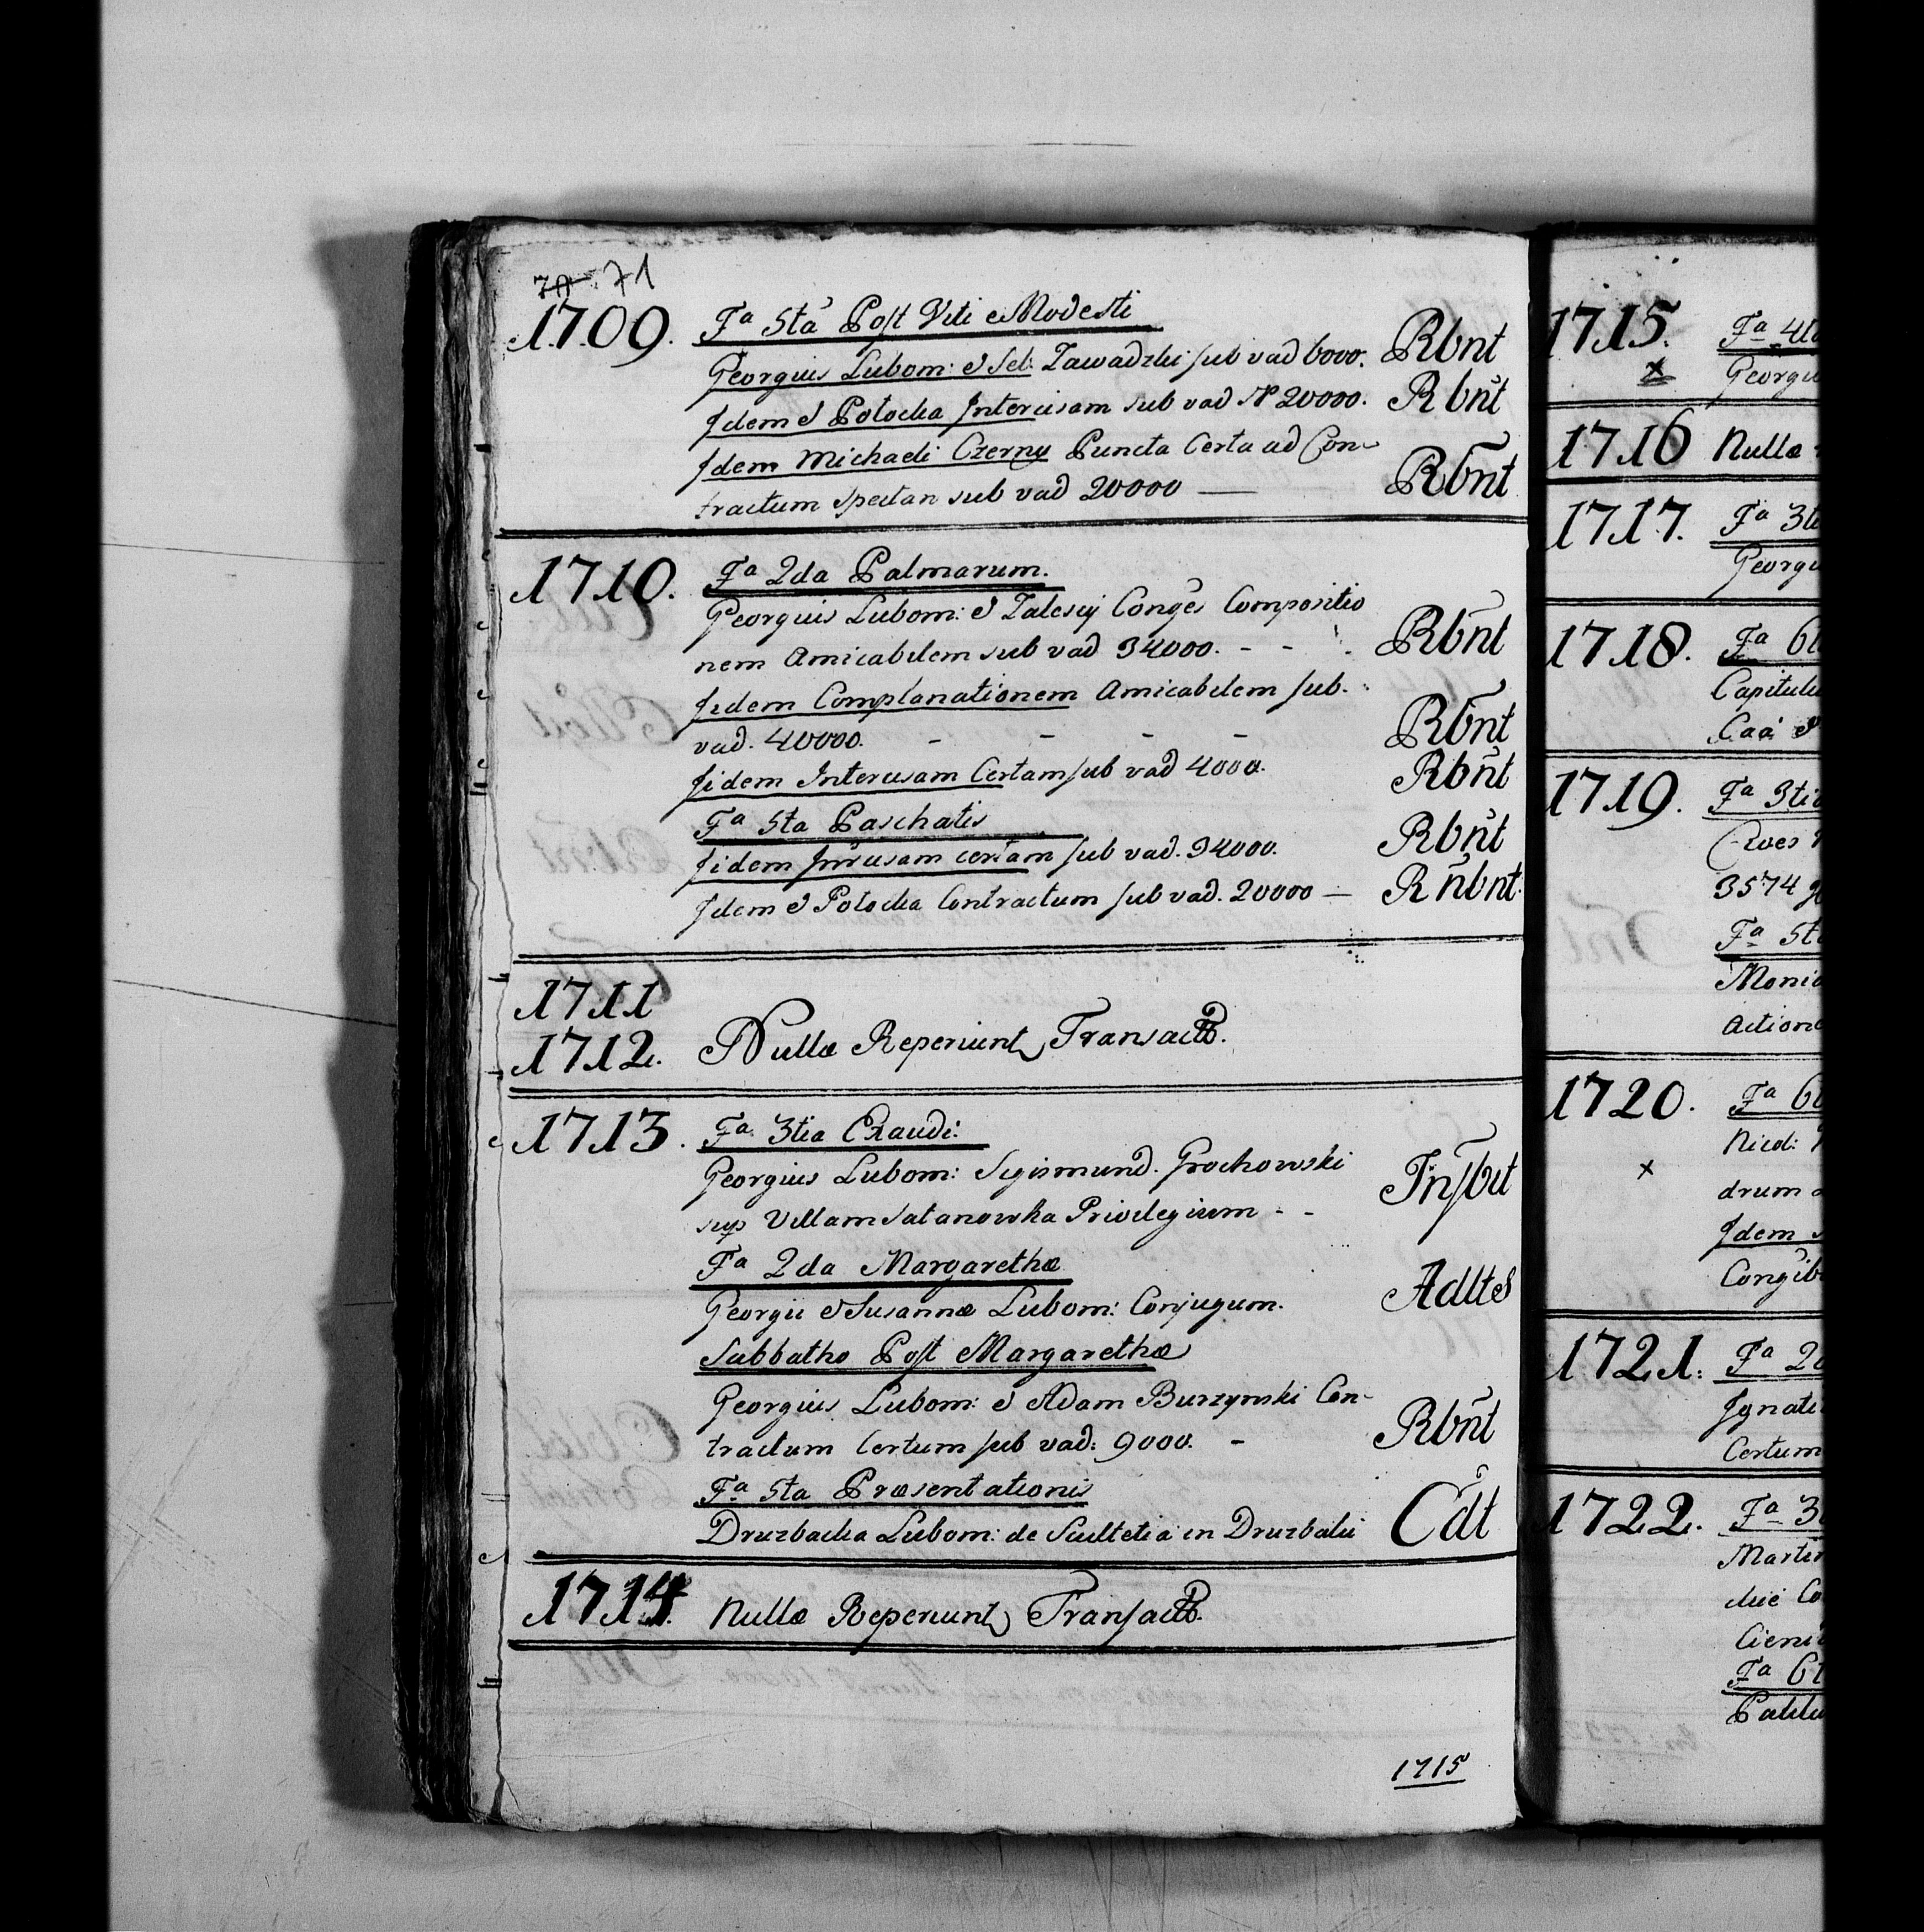 70. 71
1709. Fa 5ta Post Viti Modesti
Georgius Lubom: & Seb: Zawadzki sub vad 6000. Rbnt
Idem & Potocka Intercisam sub vad N 20000. Rbnt
Idem Michaeli Czerny Puncta Certa ad Con-
tractum Spectan sub vad 20000 — Rbnt
1710. Fa 2da Palmarum.
Georgius Lubom: & Zalescy Conges Compositio
nem Amicabilem sub vad 34000. - - - Rbnt
Iidem Complanationem Amicabilem sub.
vad. 40000. - - - - Rbnt
Iidem Intercisam Certam sub vad 4000. Rbnt
Fa 5ta Paschatis
Iidem certam sub vad. 34000. Rbnt
Idem & Potocka Contractum sub vad. 20000 — Rnbnt.
1711
1712. Nullæ Reperiunt Transact.
1713. Fa 3tia Exaudi:
Georgius Lubom: Sigismund. Grochowski
sup Villam Satanowka Privilegium - - Insbit
Fa 2da Margarethæ
Georgii & Susannæ Lubom: Conjugum. Adltes
Sabbatho Post Margarethæ
Georgius Lubom: & Adam Burzynski Con-
tractum Certum sub vad: 9000. - Rbnt
Fa 5ta Præsentationis
Druzbacka Lubom: de Scultetia in Druzbaki Cdt
1714. Nullæ Reperiunt Transact.
1715
1715. Fa 4ta
x Georgiu
1716 Nullæ
1717. Fa 3ti
Georgi
1718. Fa 6t
Capitulu
Caã &
1719. Fa 3ti
3574
Fa 5t
Monic
Actione
1720. Fa 6t
Nicol:
x drum
Idem
Congib
1721. Fa 2d
Ignati
Certum
1722. Fa 3
Martin
Co
Fa 6t